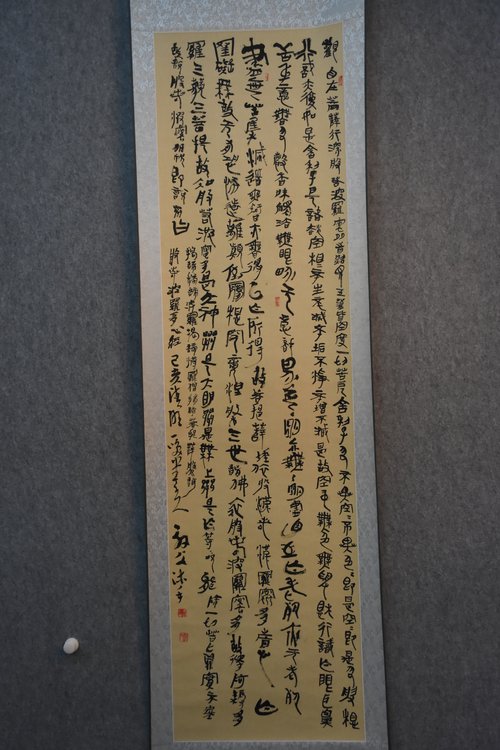 觀自在菩薩行深般若波羅蜜多時照見五蘊皆空度一切苦厄舍利子色不異空〻不異色〻即是空〻即是色受想
行識亦復如是舍利子是諸法空相不生不滅不垢不淨不增不減是故空中無色無受想行識無眼耳鼻
舌身意無色聲香味觸法無眼界乃至無意識界無〻明亦無〻明盡乃至無老死亦無老死
盡無苦集滅道無智亦無得以無所得故菩提薩埵依般若波羅蜜多故心無
罣礙無罣礙故無有恐怖遠離顛倒夢想究竟涅槃三世諸佛依般若波羅蜜多故得阿耨多
羅三藐三菩提故知般若波羅蜜多是大神咒是大明咒是無上咒是無等等咒能除一切苦真實不虛
故說般若波羅蜜多咒即說咒曰
揭諦揭諦波羅揭諦波羅僧揭諦菩提薩婆訶
般若波羅蜜多心經己亥